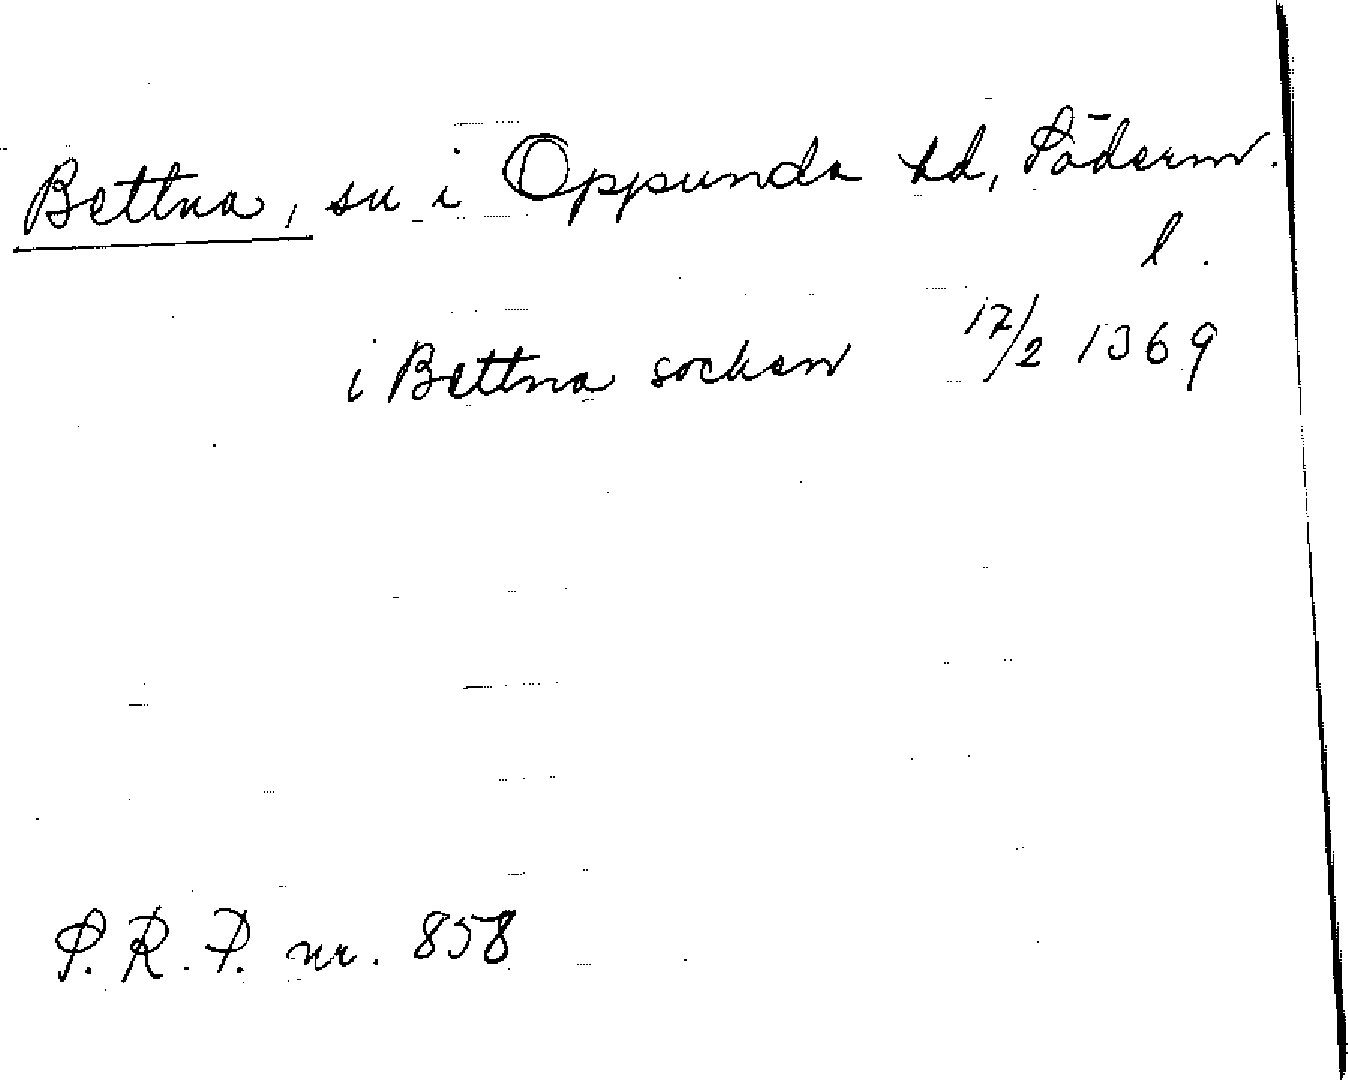 Bettna, sn i Oppunda hd, Söderm.
l.
i Bettna socken 17/2 1369
S. R. P. nr. 858